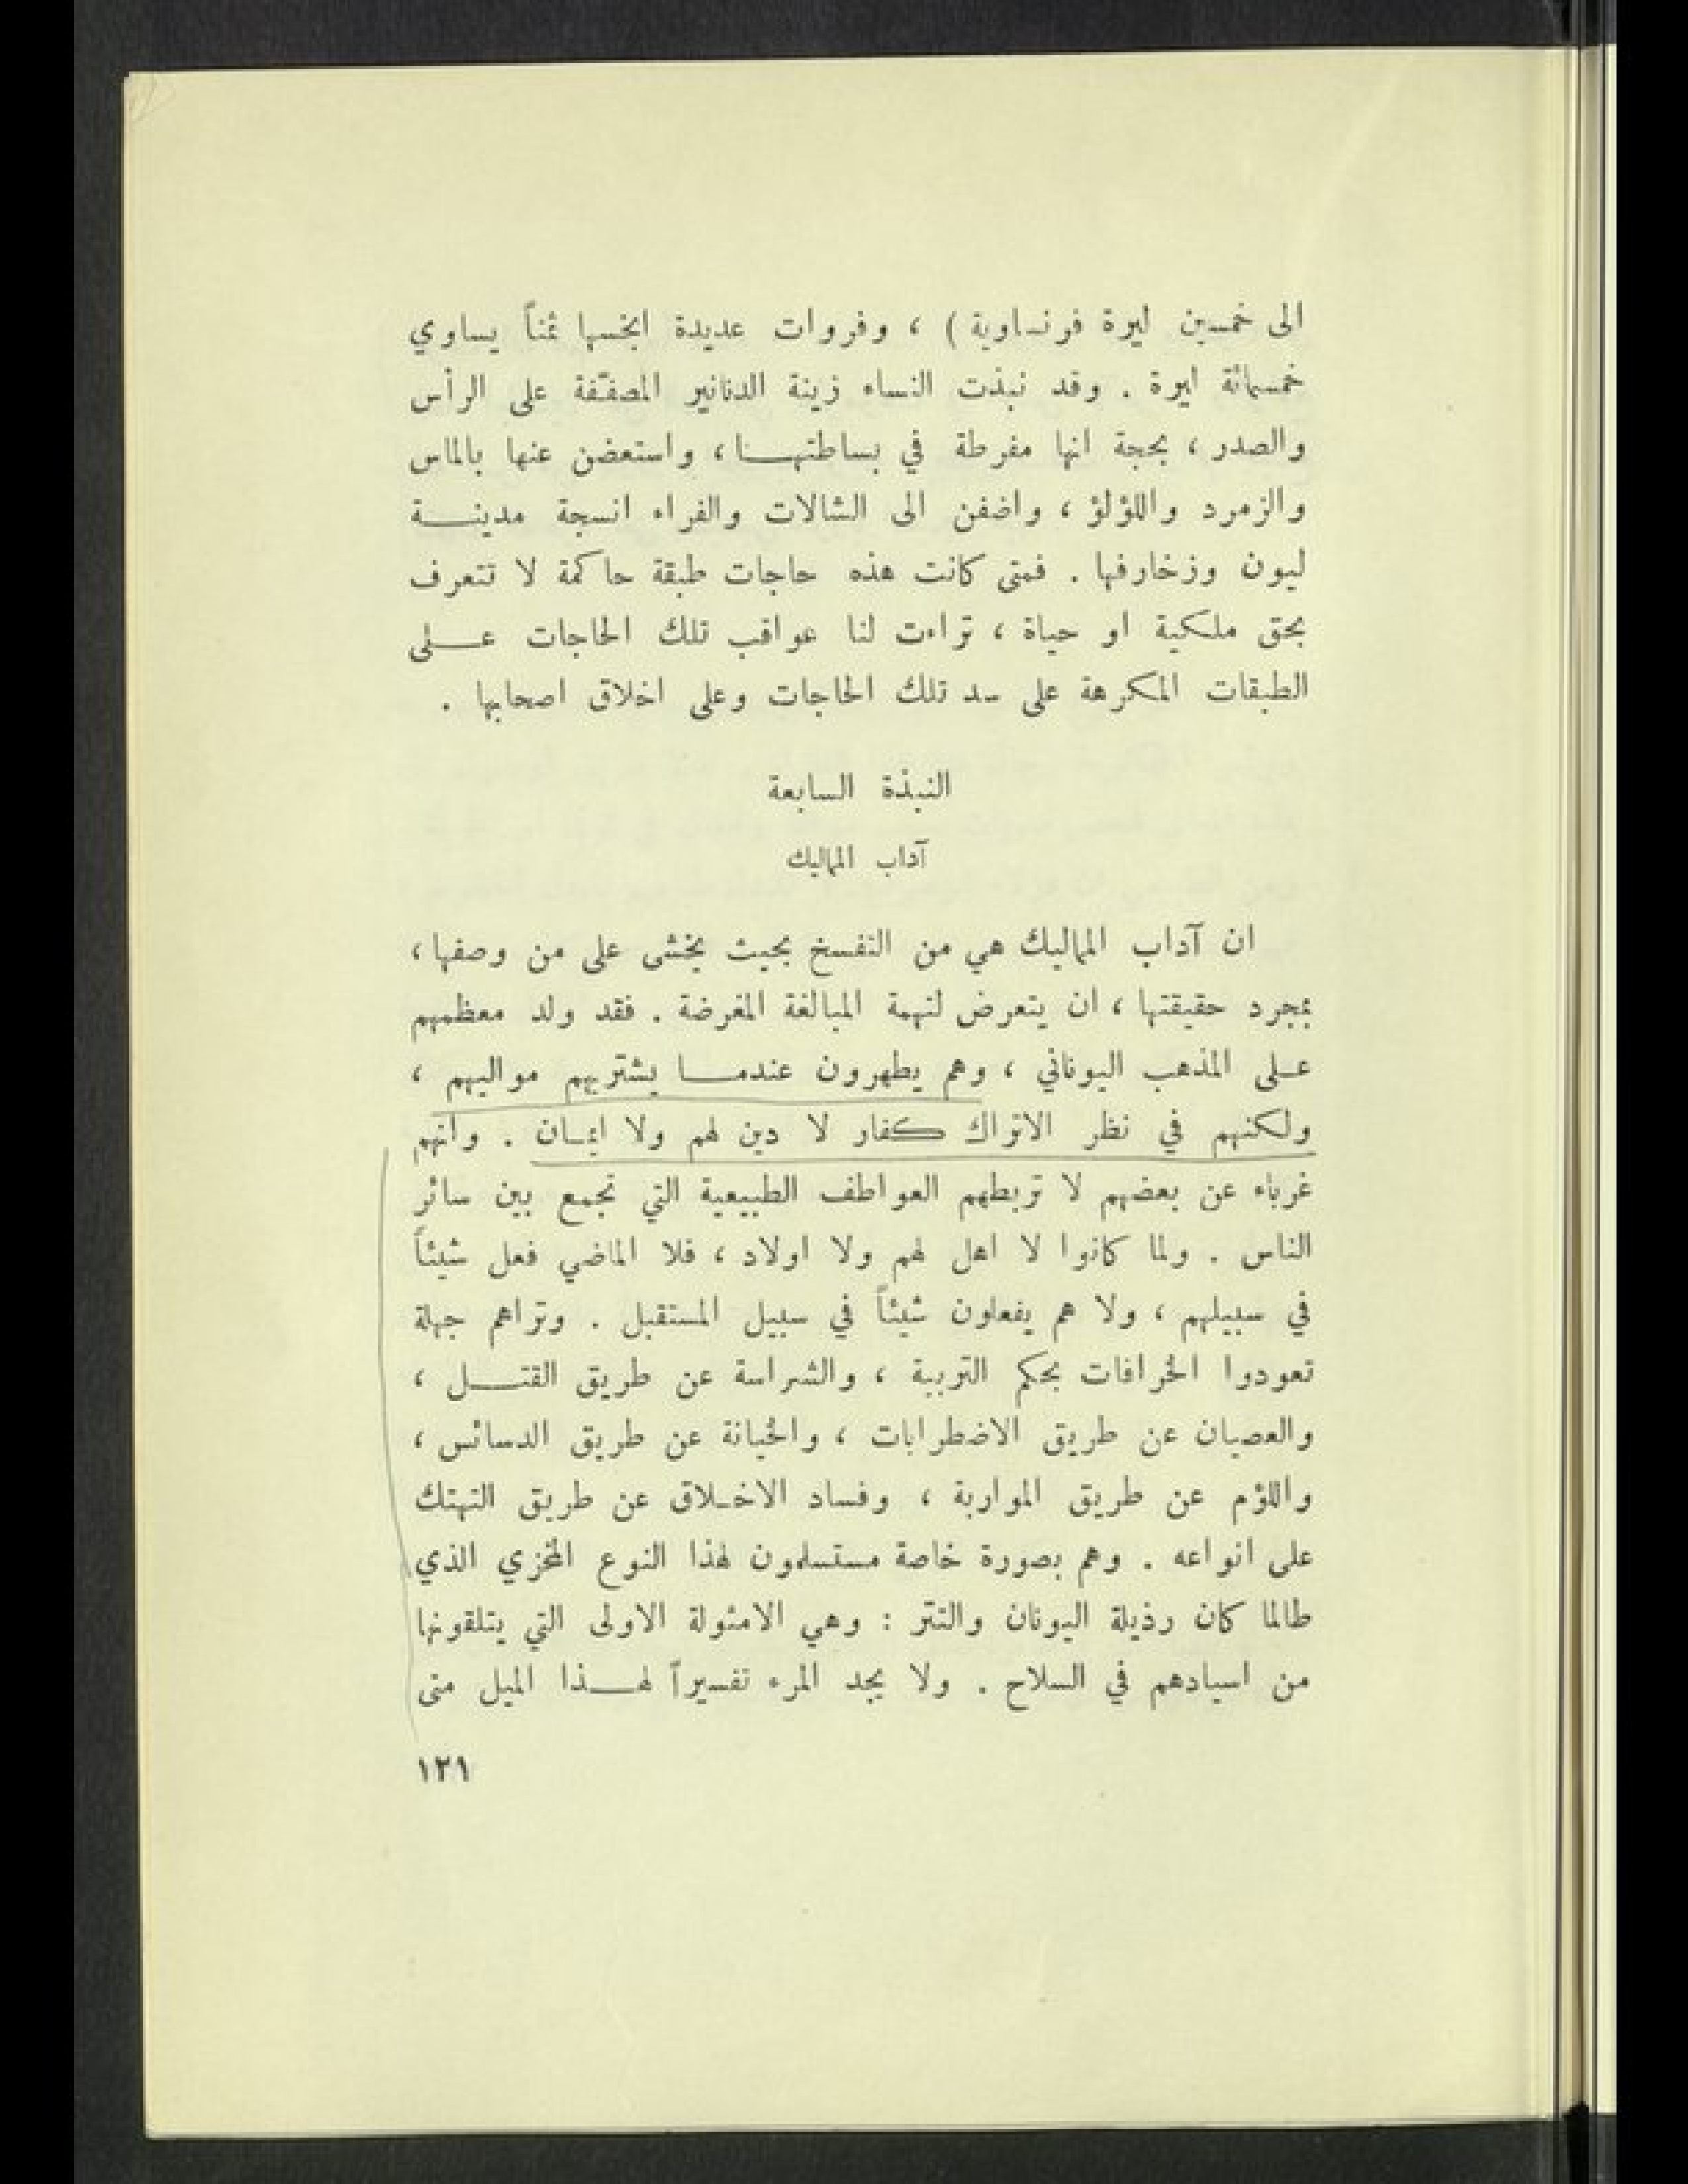 الى خمسين ليرة فرنساوية ) ، وفروات عديدة ابخسها ثمناً يساوي
خمسمائة ليرة . وقد نبذت النساء زينة الدنانير المصفّفة على الرأس
والصدر ، بحجة انها مفرطة في بساطتهـــا ، واستعضن عنها بالماس
والزمرد واللؤلؤ ، واضفن الى الشالات والفراء انسجة مدينـــة
ليون وزخارفها . فمتى كانت هذه حاجات طبقة حاكمة لا تتعرف
بحق ملكية او حياة ، تراءت لنا عواقب تلك الحاجات عـــلى
الطبقات المكرهة على سد تلك الحاجات وعلى اخلاق اصحابها .
النبذة السابعة
آداب المماليك
ان آداب المماليك هي من التفسخ بحيث يخشى على من وصفها ،
بمجرد حقيقتها ، ان يتعرض لتهمة المبالغة المغرضة . فقد ولد معظمهم
عـلى المذهب اليوناني ، وهم يطهرون عندمـــا يشتريهم مواليهم ،
ولكنهم في نظر الاتراك كفار لا دين لهم ولا ايمـان . وانهم
غرباء عن بعضهم لا تربطهم العواطف الطبيعية التي تجمع بين سائر
الناس . ولما كانوا لا اهل لهم ولا اولاد ، فلا الماضي فعل شيئاً
في سبيلهم ، ولا هم يفعلون شيئاً في سبيل المستقبل . وتراهم جهلة
تعودوا الخرافات بحكم التربية ، والشراسة عن طريق القتـــل ،
والعصيان عن طريق الاضطرابات ، والخيانة عن طريق الدسائس ،
واللؤم عن طريق المواربة ، وفساد الاخـلاق عن طريق التهتك
على انواعه . وهم بصورة خاصة مستسلمون لهذا النوع المخزي الذي
طالما كان رذيلة اليونان والتتر : وهي الامثولة الاولى التي يتلقونها
من اسيادهم في السلاح . ولا يجد المرء تفسيراً لهـــذا الميل متى
١٢١